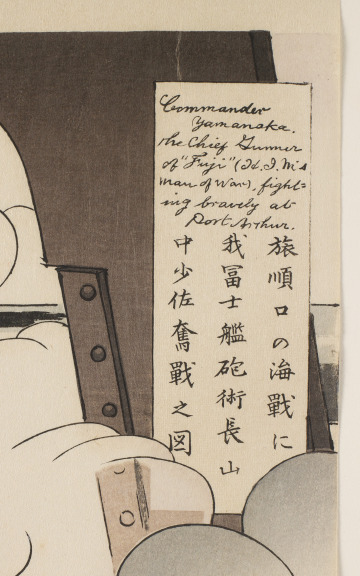 Commander
Yamanaka.
the Chief Gunner
of "Fuji" (H.I.M's
man of war), fight=
ing bravely at
Port Arthur.
旅順口の海戰に
我冨士艦砲術長山
中少佐奮戰之図